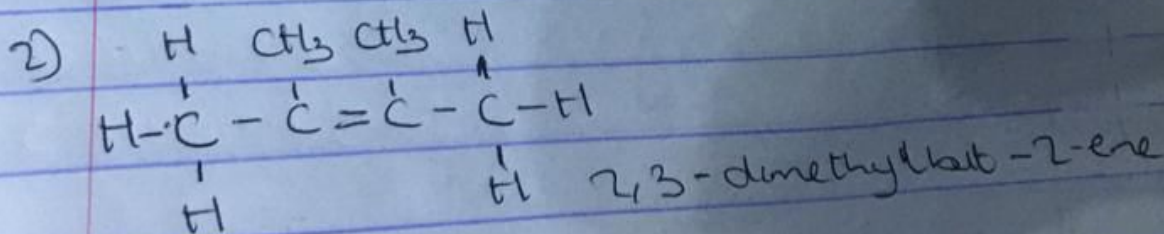 2) H CH3 CH3 H
H-C-C=C-C-H
H H 2,3-dimethylbut-2-ene